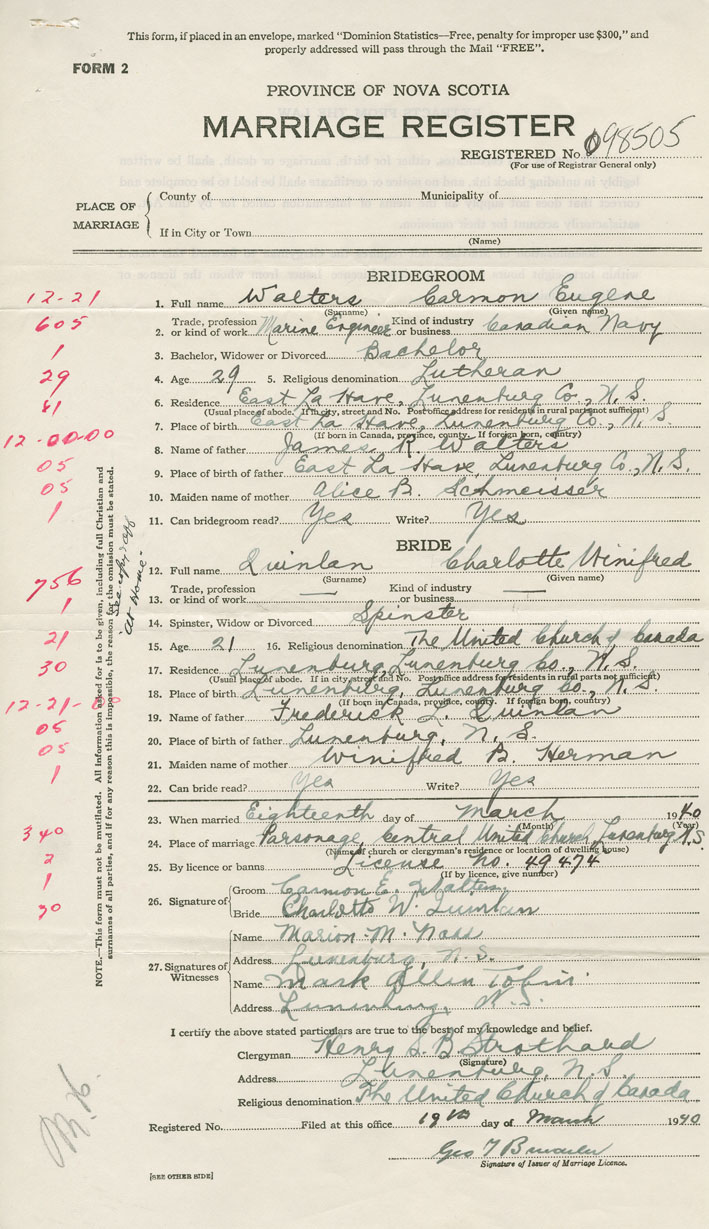 This form, if placed in an envelope, marked "Dominion Statistics—Free, penalty for improper use $300," and
properly addressed will pass through the Mail "FREE".
FORM 2
PROVINCE OF NOVA SCOTIA
MARRIAGE REGISTER
REGISTERED No. 098505
(For use of Registrar General only)
PLACE OF MARRIAGE
County of Municipality of
If in City or Town
(Name)
BRIDEGROOM
12-21
1. Full name Walters Carmon Eugene
(Surname) (Given name)
605
2. Trade, profession or kind of work Marine Engineer Kind of industry or business Canadian Navy
1
3. Bachelor, Widower or Divorced Bachelor
29
4. Age 29 5. Religious denomination Lutheran
41
6. Residence East La Have, Lunenburg Co., N.S.
(Usual place of abode. If in city, street and No. Post office address for residents in rural parts not sufficient)
12-00.00
7. Place of birth East La Have, Lunenburg Co., N.S.
(If born in Canada, province, county. If foreign born, country)
8. Name of father James R. Walters
05
9. Place of birth of father East La Have, Lunenburg Co., N.S.
05
10. Maiden name of mother Alice B. Schmeisser
1
11. Can bridegroom read? Yes Write? Yes
BRIDE
12. Full name Quinlan Charlotte Winifred
(Surname) (Given name)
756
13. Trade, profession or kind of work — Kind of industry or business —
1
14. Spinster, Widow or Divorced Spinster
21
15. Age 21 16. Religious denomination The United Church of Canada
30
17. Residence Lunenburg, Lunenburg Co., N.S.
(Usual place of abode. If in city street and No. Post office address for residents in rural parts not sufficient)
12-21-
18. Place of birth Lunenburg, Lunenburg Co., N.S.
(If born in Canada, province, county. If foreign born, country)
05
19. Name of father Frederick L. Quinlan
05
20. Place of birth of father Lunenburg, N.S.
21. Maiden name of mother Winifred B. Herman
1
22. Can bride read? Yes Write? Yes
23. When married Eighteenth day of March 1940
(Month) (Year)
340
24. Place of marriage Parsonage, Central United Church, Lunenburg N.S.
(Name of church or clergyman's residence or location of dwelling house)
2
25. By licence or banns License No. 49474
(If by licence, give number)
1
26. Signature of Groom Carmon E. Walters
30
Bride Charlotte W. Quinlan
27. Signatures of Witnesses
Name Marion M. Nass
Address Lunenburg, N.S.
Name Mark Allen Tobin
Address Lunenburg, N.S.
I certify the above stated particulars are true to the best of my knowledge and belief.
Clergyman Henry S. B. Strothard
(Signature)
Address Lunenburg, N.S.
Religious denomination The United Church of Canada
Registered No. Filed at this office 19th day of March 1940
Geo T
Signature of Issuer of Marriage Licence.
[SEE OTHER SIDE]
NOTE.—This form must not be mutilated. All information asked for is to be given, including full Christian and
surnames of all parties, and if for any reason this is impossible, the reason for the omission must be stated.
See copy
At Home.